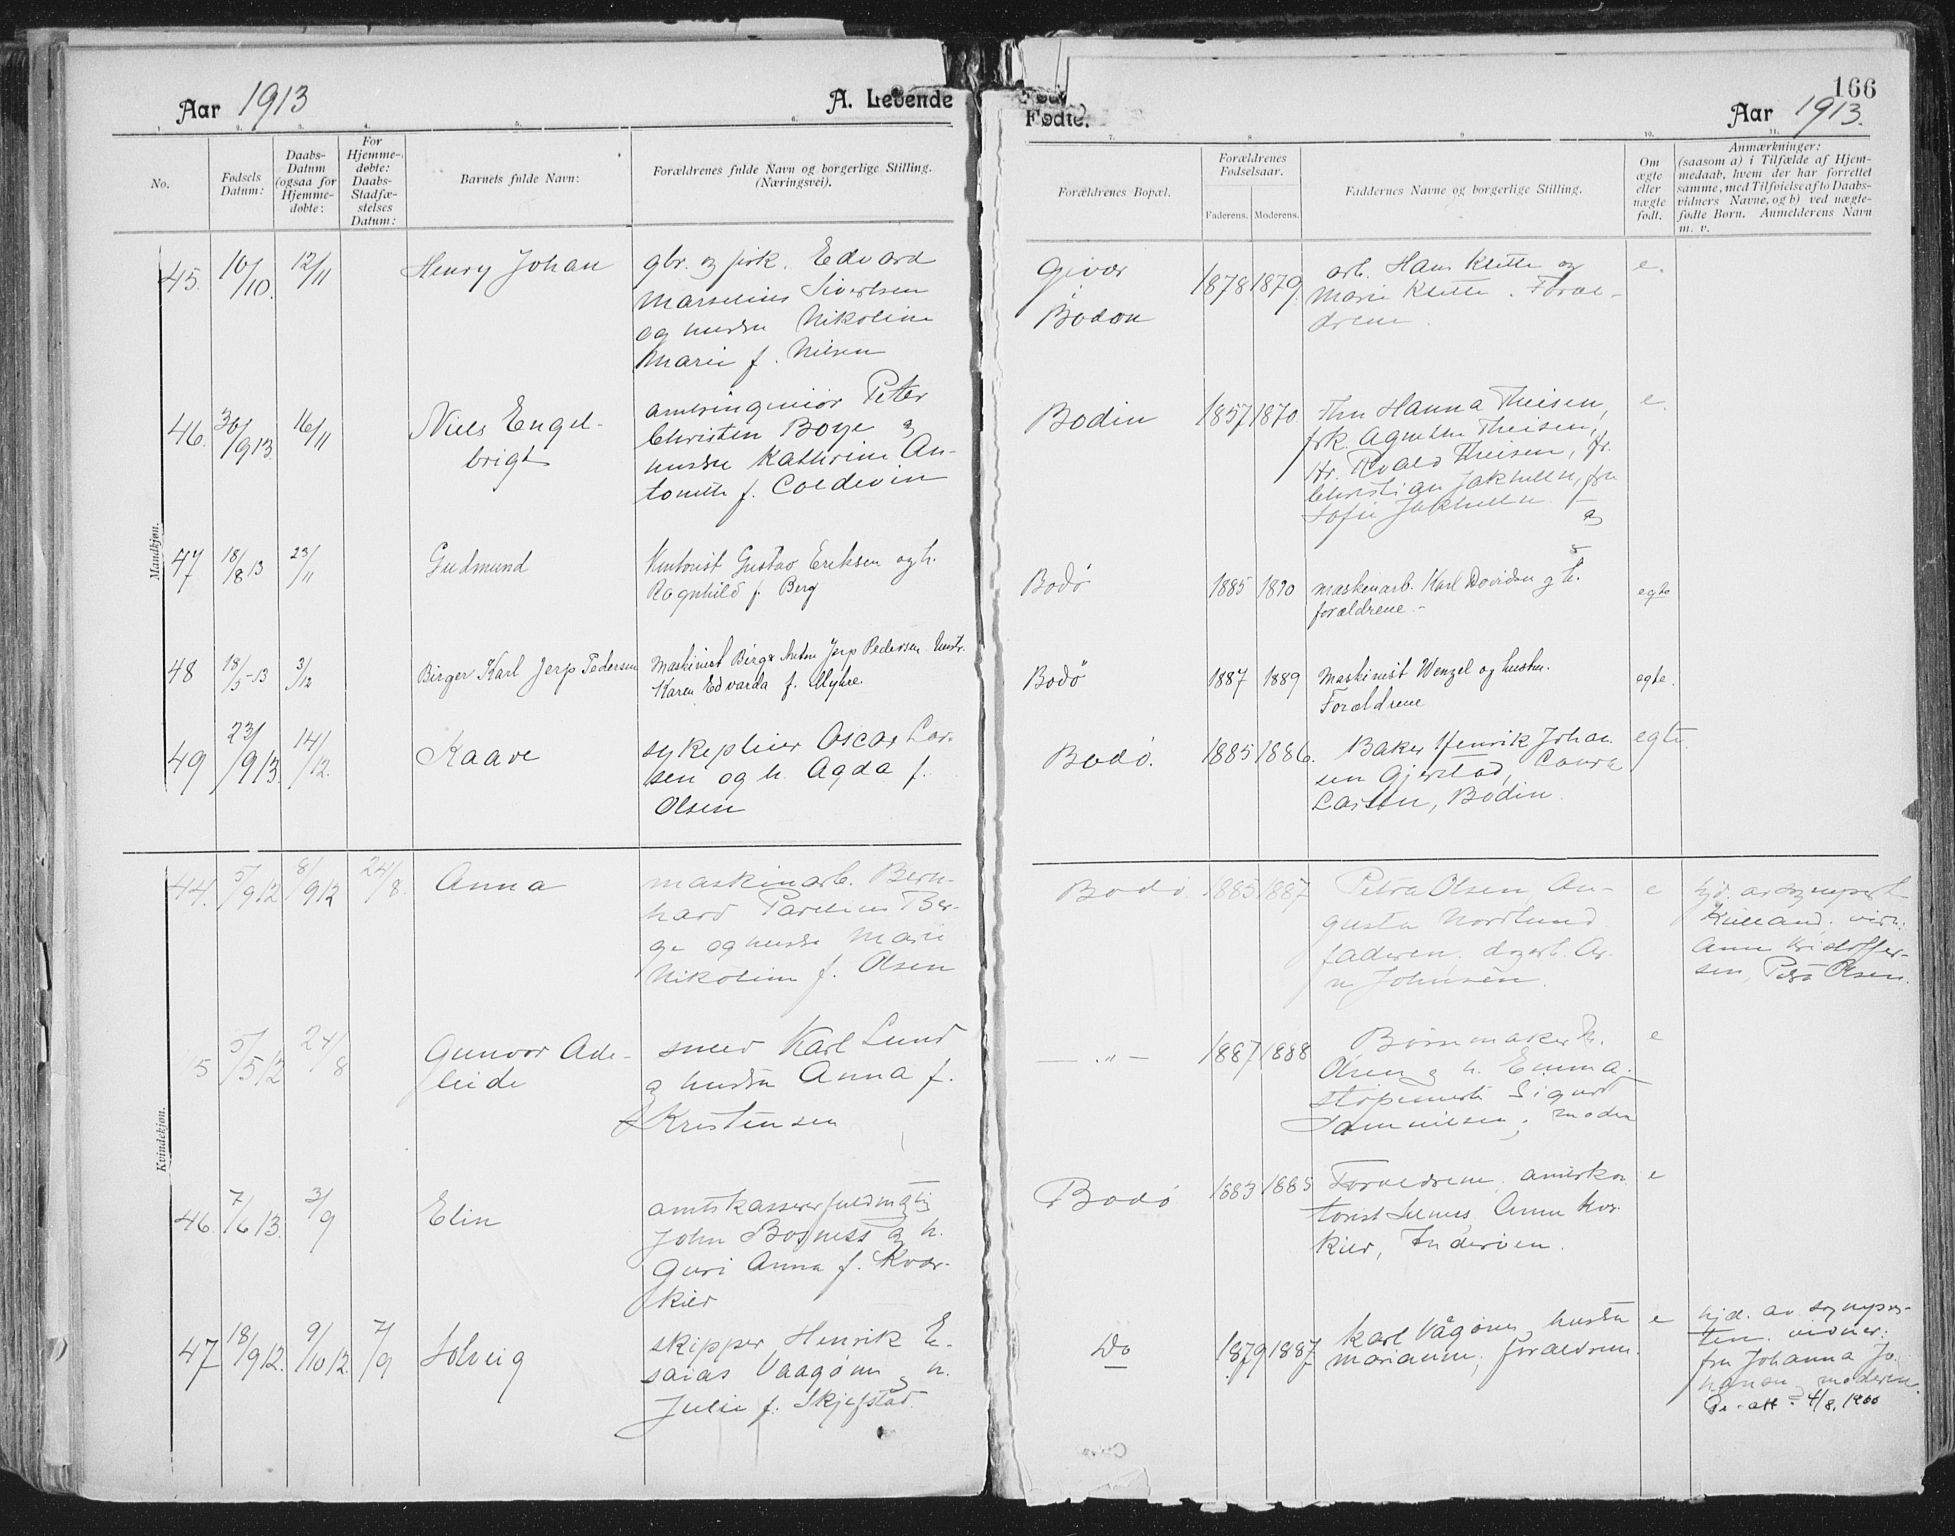 Aar 1913
A. Levende
Fødte.
166
Aar 1913.
1. 2. 3. 4. 5. 6. 7. 8. 9. 10. 11.
No.
Fødsels
Datum:
Daabs-
Datum
(ogsaa for
Hjemme-
døbte:
For
Hjemme-
døbte:
Daabs-
Stadfæ-
stelses
Datum:
Barnets fulde Navn:
Forældrenes fulde Navn og borgerlige Stilling.
(Næringsvei).
Forældrenes Bopæl.
Forældrenes
Fødselsaar.
Faderens. Moderens.
Faddernes Navne og borgerlige Stilling.
Om
ægte
eller
uægte
født.
Anmærkninger:
(saasom a) i Tilfælde af Hjem-
medaab, hvem der har forrettet
samme, med Tilføielse af to Daabs-
vidners Navne, og b) ved uægte-
fødte Børn. Anmelderens Navn
m. v.
Mandkjøn.
45. 10/10. 12/11
Henry Johan
gbr. og fisk. Edvard
Marselius Sivertsen
og hustru Nikoline
Marie f. Nilsen
Givær
Bodøn
1878 1879.
arb. Hans Klette og
Marie Klette. Foræl-
drene.
e.
46. 30/9 13. 16/11
Niels Engel-
brigt
amtsingeniør Peter
Christen Boye og
hustru Kathrine An-
tonette f. Coldevin
Bodin
1857 1870.
Fru Hanna Theisen,
frk. Agnethe Theisen,
Hr. Roald Theisen, fr.
Christian Jakhelln, fru
Sofie Jakhelln.
e.
47 18/8 13 23/11
Gudmund
Kontorist Gustav Eriksen og h.
Ragnhild f. Berg
Bodø
1885 1890
maskinarb. Karl Davidsen og h.
forældrene.
egte
48 18/5-13 3/12
Birger Karl Jerp Pedersen
Maskinist Birger Anton Jerp Pedersen Hustr.
Karen Edvarda f. Myhre.
Bodø
1887 1889
Maskinist Wenzel og hustru.
Forældrene
egte.
49 23/9 13. 14/12.
Kaare
sykepleier Oscar Lar-
sen og h. Agda f.
Olsen
Bodø.
1885 1886.
Baker Henrik Johan
sen Gjerstad, Laura
Larsen, Bodin.
egte.
Kvindekjøn.
44. 5/9 12 8/9 12 24/8.
Anna
maskinarb. Bern-
hard Parelius Ber-
ge og hustru Marie
Nikoline f. Olsen
Bodø
1885 1887
Petra Olsen, Au-
gusta Nordlund
faderen,
Johnsen.
e
hjd. av sogneprest
Kielland, vidn.:
Anne Kristoffer-
sen, Petra Olsen.
5 5/5 12 24/8
Gunvor Ade-
leide
smed Karl Lund
og hustru Anna f.
Kristensen
— " —
1887 1888
Børsemaker
Olsen og h. Emma.
Sigurd
moderen
e
46. 7/6 13. 3/9
Elin
amtskassererfuldmægtig
John Bosness og h.
Guri Anna f. Kvær-
kild
Bodø
1883 1885
Forældrene, amtskon
torist Anna Kvær
kild, Inderøen.
e
47 18/9 12. 9/10 12. 7/9
Solveig
skipper Henrik E-
saias Vaagønes og h.
Julie f. Skjefstad.
Do
1879 1887
Karl Vågønes, hustru
Marianne, forældrene.
e
hjd. av sognepres-
ten. vidner:
fru Johanna Jo-
hansen, moderen.
4/8. 1900